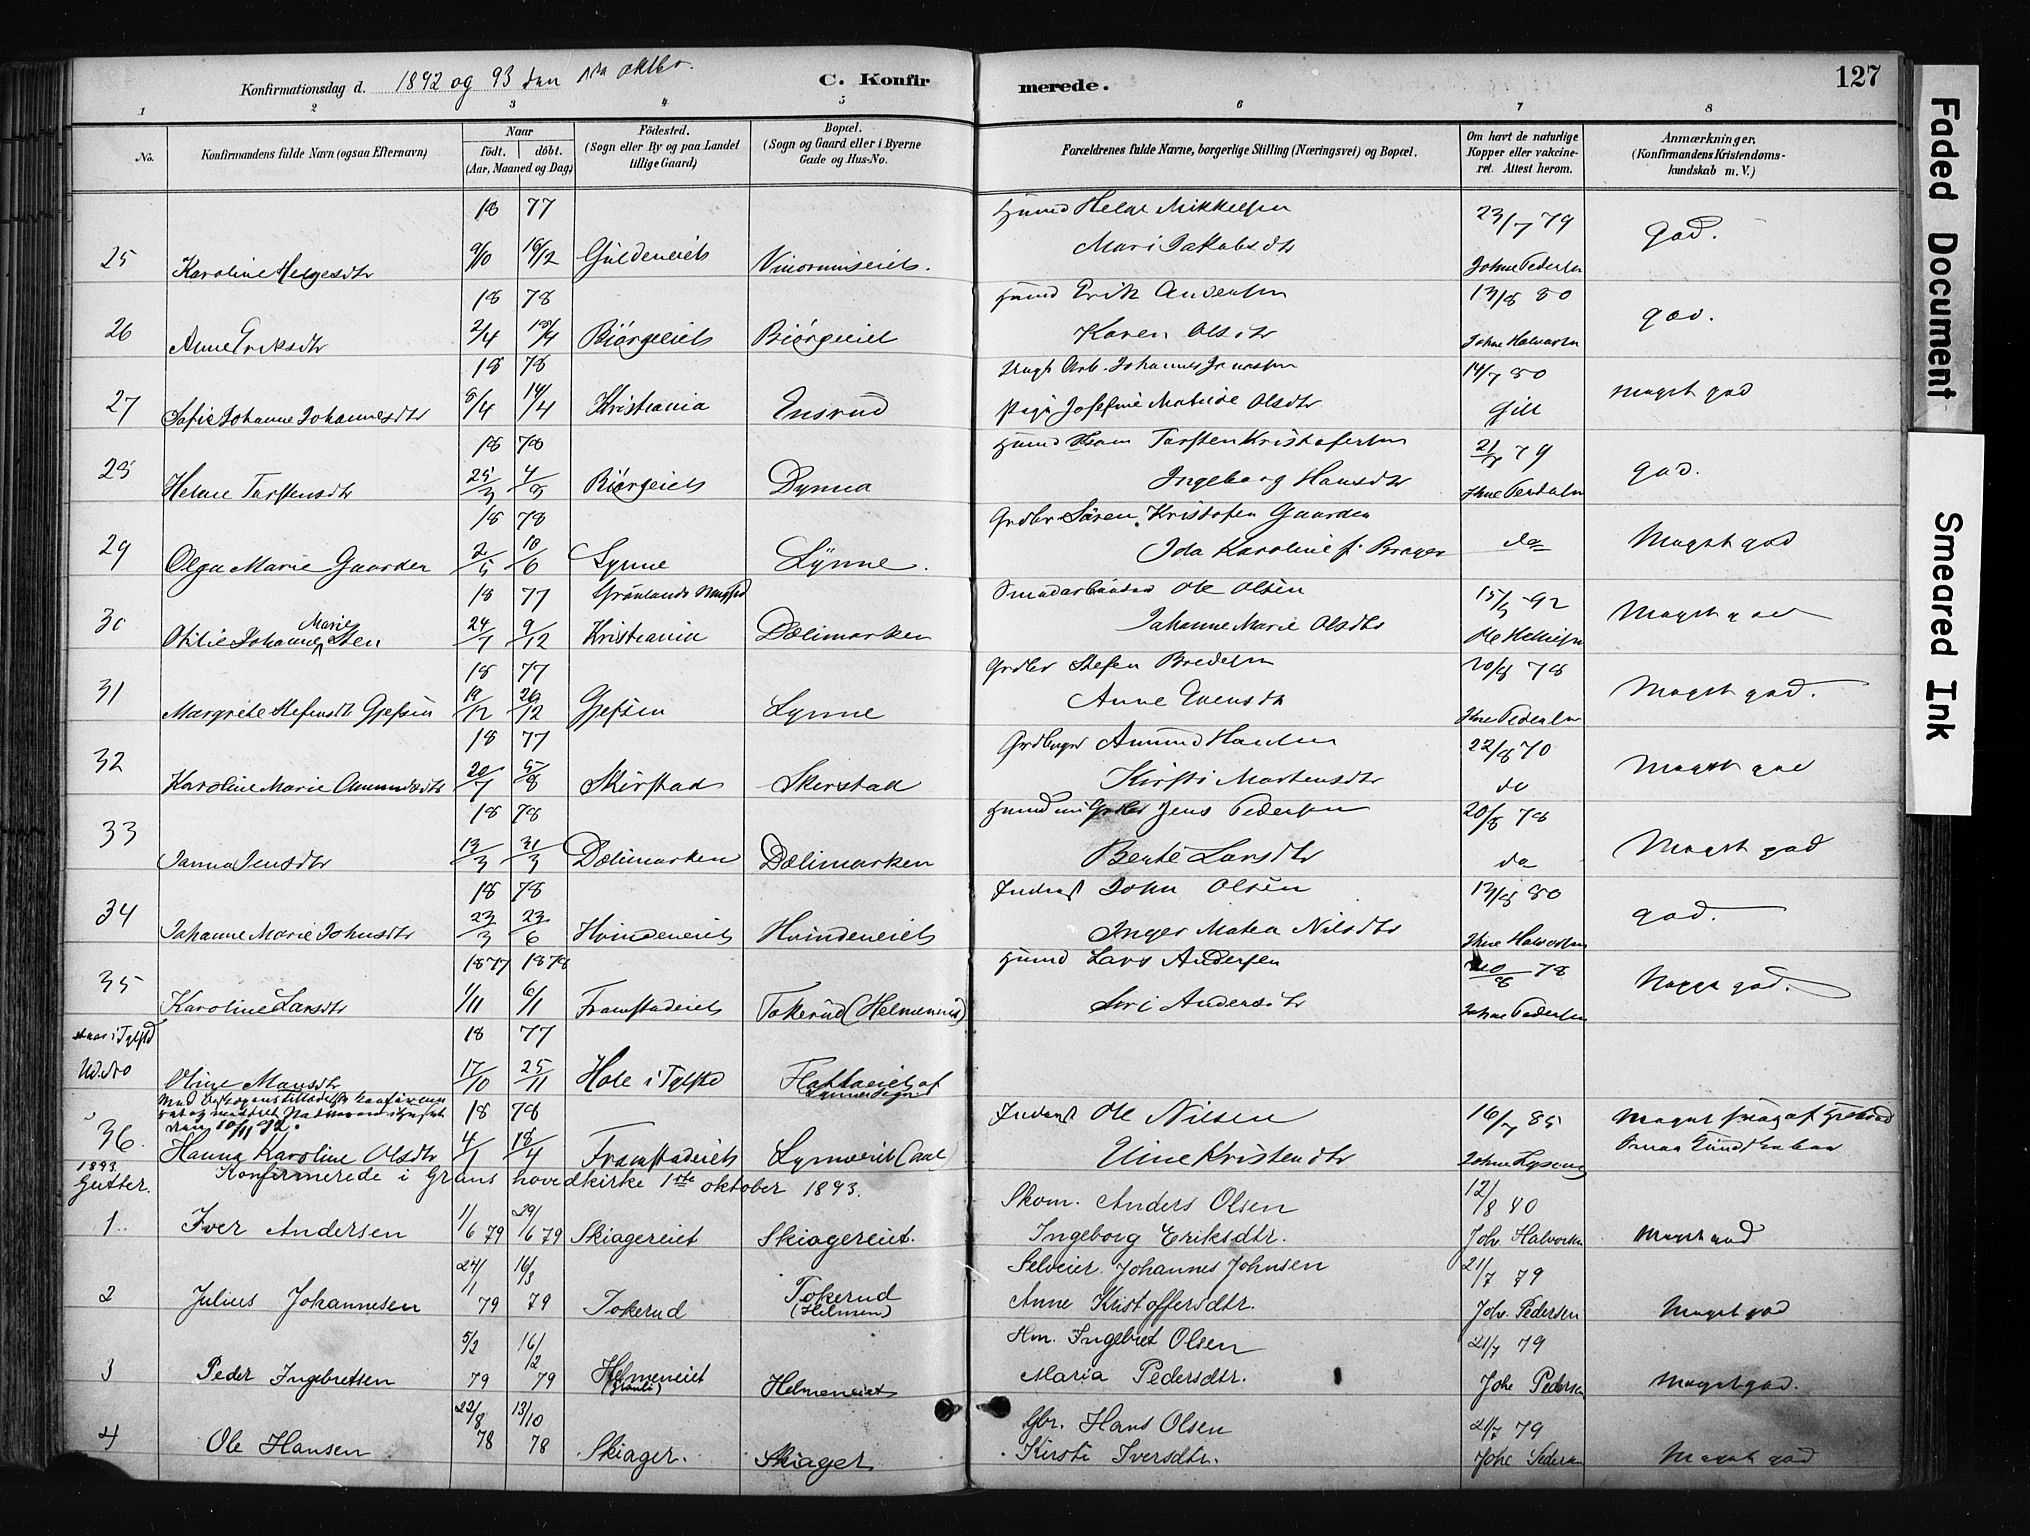 Konfirmationsdag d. 1892 og 93 den 1ste oktbr. C. Konfirmerede. 127
1 2 3 4 5 6 7 8
No. Konfirmandens fulde Navn (ogsaa Efternavn) Naar Födt. döbt. (Aar, Maaned og Dag) Födested. (Sogn eller By og paa Landet tillige Gaard) Bopæl. (Sogn og Gaard eller i Byerne Gade og Hus-No. Forældrenes fulde Navne, borgerlige Stilling (Næringsvei) og Bopæl. Om havt de naturlige Kopper eller vakcineret. Attest herom. Anmærkninger, (Konfirmandens Kristendomskundskab m. V.)
18 77 Huusmd Helge Mikkelsen 23/7 79
25 Karoline Helgesdtr 9/10 16/12 Guldeneiets Vinormseiets. Mari Jakobsdtr Johne Pedersen god.
18 78 Huusmd Erik Andersen 13/8 80
26 Anne Eriksdtr 2/4 Biørgeeiets Biørgeeiet Karen Olsdtr Johne Halvorsen god.
18 78 Johannes 14/7 80
27 Sofie Johanne Johannesdtr 8/4 14/4 Kristiania Ensrud Pige Josefine Matilde Olsdtr Gill Meget god
18 78 Torsten Kristofersen 21/7 79
28 Helene Torstensdtr 25/3 Biørgeiets Dynna Ingeborg Hansdtr god.
18 78 Grdbr Søren Kristofen Gaarden
29 Olga Marie Gaarder 2/5 10/6 Lynne Lynne. Ida Karoline f. Brager do Meget god
18 77 Grønlands Ole Olsen 15/5 92
30 Otilie Johanne Marie Sten 24/7 9/12 Kristiania Dælimarken Johanne Marie Olsdtr Meget god
18 77 Grdbr Stefen Bredesen 20/8 78
31 Margrete Stefensdtr Gjefsen 19/12 26/12 Gjefsen Lynne Anne Evensdtr Johne Pedersen Meget god.
18 77 Amund Hansen 22/8 70
32 Karoline Marie Amundsdtr 20/7 5/8 Skirstad Skirstad Kirsti Mortensdtr do Meget god
18 78 Jens Pedersen 20/8 78
33 Janna Jensdtr 13/3 31/3 Dælimarken Dælimarken Berte Larsdtr do Meget god
18 78 Inderst John Olsen 13/8 80
34 Johanne Marie Johnsdtr 23/3 23/6 Hvindeneiets Hvindeneiets Inger Matea Nilsdtr Johne Halvorsen god.
1877 1878 Huusmd Lars Andersen 20/8 78
35 Karoline Larsdtr 1/11 6/1 Framstadeiets Tokerud (Helmeneiet) Siri Andersdtr Johne Pedersen Meget god.
18 77
Oline Monsdtr 17/10 25/11 Hole i Flattaeiet af Lynner Sogn
den 10/11 92.
18 78 Inderst Ole Nilsen 16/7 85
36. Hanna Karoline Olsdtr 4/1 18/4 Framstadeiets Lynneeiet Eline Kristendtr Johne
1893. Gutter. Konfirmerede i Grans hovedkirke 1ste oktober 1893.
Skom. Anders Olsen 12/8 80
1 Iver Andersen 1/6 79 29/6 79 Skiagereiet Skiagereiet. Ingeborg Eriksdtr. Joh. Halvorsen Meget god
Selveier Johannes Johnsen 21/7 79
2 Julius Johannesen 24/1 79 16/3 79 Tokerud Tokerud (Helmen) Anne Kristoffersdtr. Joh. Pedersen Meget god
Hm. Ingebret Olsen 21/7 79
3 Peder Ingebretsen 5/2 79 16/2 79 Helmeneiet Helmeneiet Maria Pedersdtr. Johe Pedersen Meget god.
Gbr. Hans Olsen 21/7 79
4 Ole Hansen 22/8 78 13/10 78 Skiager. Skiager Kirsti Iversdtr. Johe Pedersen Meget god
Faded Document
Smeared Ink